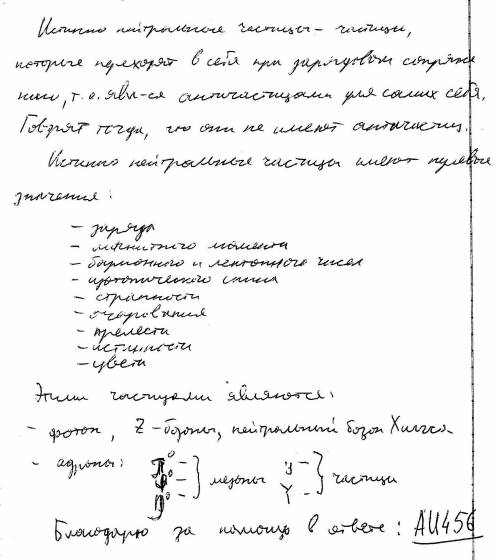 Истинно нейтральные частицы - частицы,
которые переходят в себя при зарядовом сопряже
нии, т.е. явл-ся античастицами для самих себя.
Говорят тогда, что они не имеют античастиц.
Истинно нейтральные частицы имеют нулевые
значения:
- заряда
- магнитного момента
- барионного и лептонного чисел
- изотопического спина
- странности
- очарования
- прелести
- истинности
- цвета
Этими частицами являются:
- фотон, Z-бозоны, нейтральный бозон Хиггса.
- адроны: π⁰ - } мезоны } частицы
Благодарю за помощь в ответе: AU456